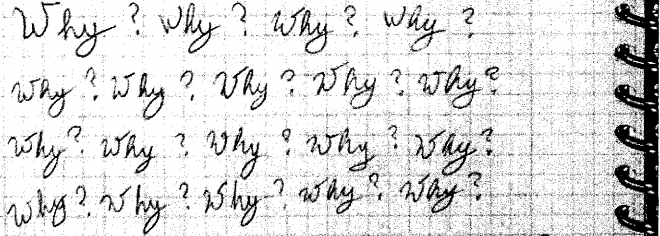 Why? Why? Why? Why?
Why? Why? Why? Why? Why?
Why? Why? Why? Why? Why?
Why? Why? Why? Why? Why?